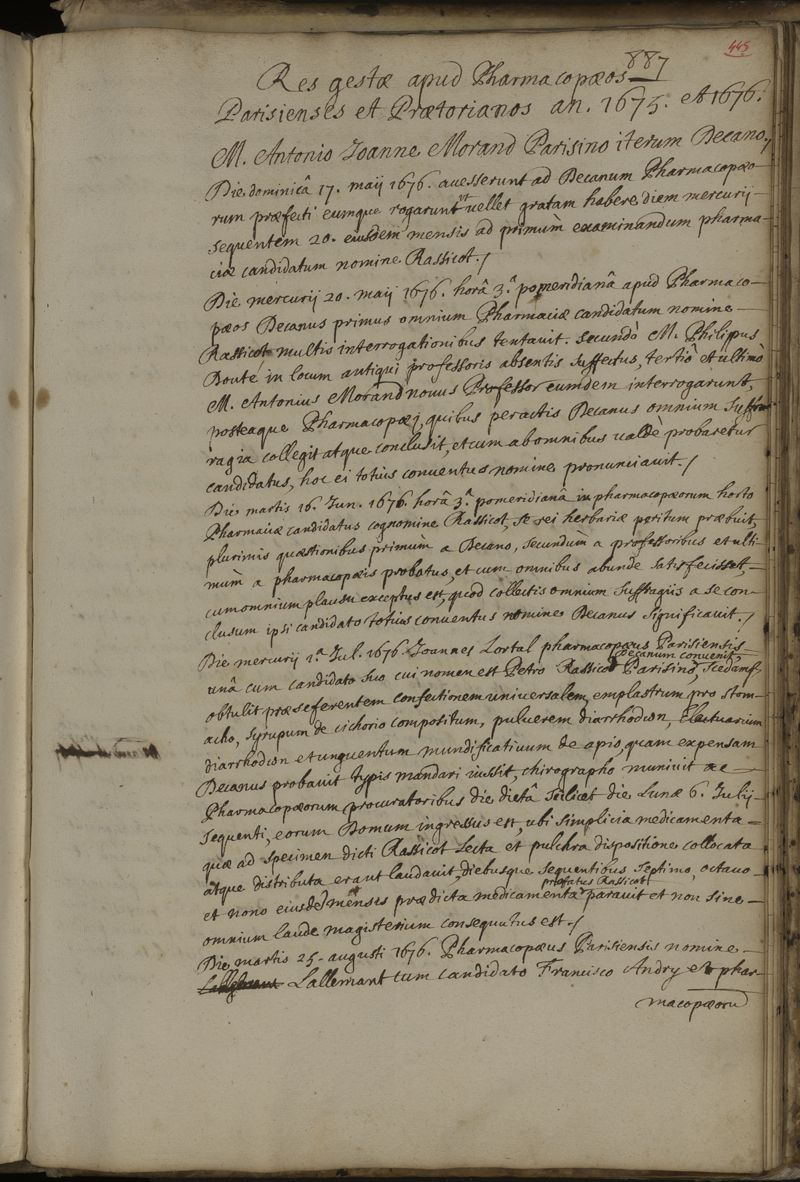 445
887
Res gestæ apud Pharmacopæos
Parisienses et Prætorianos an. 1675. et 1676.
M. Antonio Joanne Morand Parisino iterum Decano./
Die dominicâ 17. maij 1676. accesserunt ad Decanum Pharmacopæo-
rum præfecti eumque rogarunt ut vellet gratam habere diem mercurij
sequentem 20. eiusdem mensis ad primùm examinandum pharma-
ciæ candidatum nomine Rassicot./
Die mercurij 20. maij 1676. horâ 3.ª pomeridianâ apud Pharmaco-
pæos Decanus primus omnium Pharmaciæ candidatum nomine
Rassicot multis interrogationibus tentauit. secundò M. Philippus
Douté in locum antiqui professoris absentis suffectus, tertiò et ultimò
M. Antonius Morand nouus Professor eumdem interrogarunt,
posteaque Pharmacopæi, quibus peractis Decanus omnium suffra-
ragia collegit atque conclusit, et cum ab omnibus ualdè probaretur
candidatus, hoc ei totius conuentus nomine pronunciauit./
Die martis 16. Jun. 1676. horâ 3.ª pomeridianâ in pharmacopæorum horto
Pharmaciæ candidatus cognomine Rassicot, se rei herbariæ peritum præbuit,
plurimis quæstionibus primùm a Decano, secundùm a professoribus et ulti-
mùm a pharmacopæis probatus, et cum omnibus abunde satisfecisset,
cum omnium plausu exceptus est, quod collectis omnium suffragiis a se con-
clusum ipsi candidato totius conuentus nomine Decanus significauit./
Die mercurij 1.ª Jul. 1676. Joannes Lortal pharmacopæus Parisiensis
Decanum conuenit,
unâ cum candidato suo cui nomen est Petro Rassicot Parisino,
obtulit præseferentem confectionem uniuersalem, emplastrum pro stom-
acho, syrupum de cichorio compositum, puluerem diarrhodωn, Electuarium
diarrhodωn et unguentum mundificatiuum de apio, quam expensam
Decanus probauit typis mandari iussit, chirographo muniuit ac
Pharmacopæorum procuratoribus die dictâ scilicet die Lunæ 6. Julij
sequenti, eorum Domum ingressus est, ubi simplicia medicamenta
quæ ad specimen dicti Rassicot Lecta et pulchra dispositione collocata
atque distributa erant laudauit, diebusque sequentibus septimo, octauo
præfatus Rassicot
et nono eiusdem mensis prædicta medicamenta parauit et non sine
omnium laude magisterium consequutus est./
Die martis 25. augusti 1676. Pharmacopæus Parisiensis nomine
Lallemant cum candidato Francisco Andry et phar-
macopæorū